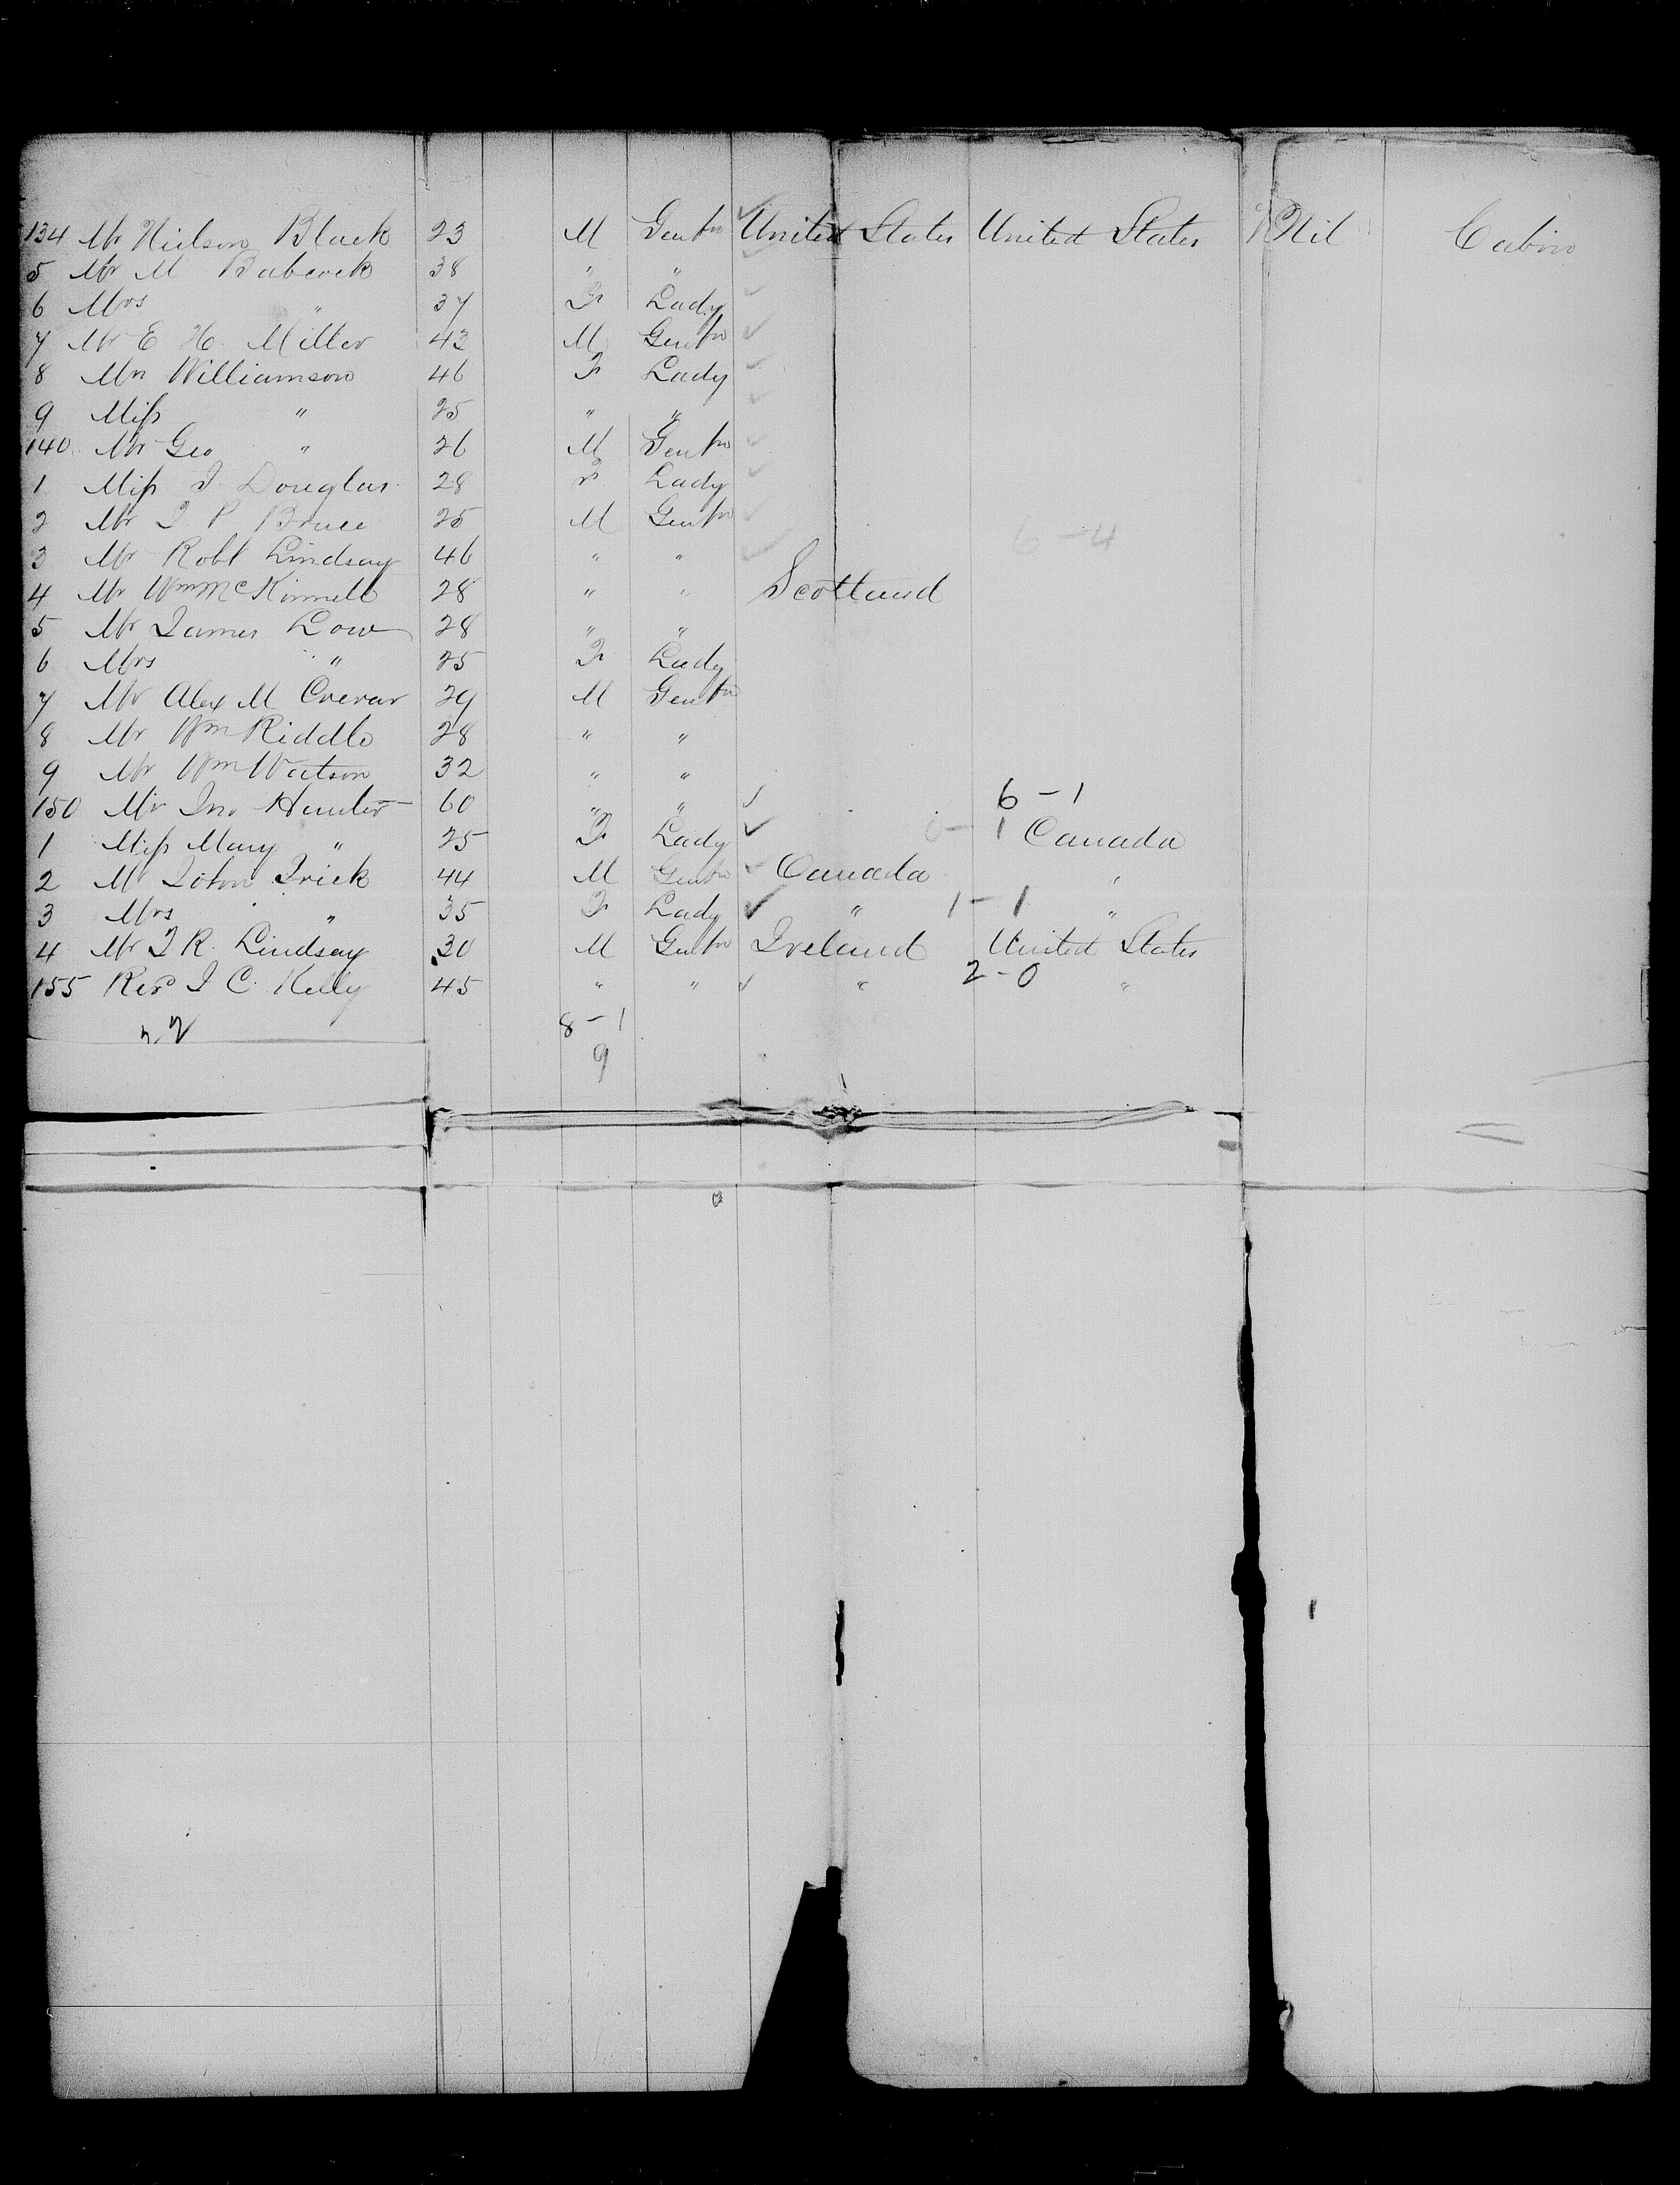 134 Mr Neilson Black 23 M Gentn United States United States Nil Cabin
5 Mr M Babcock 38 " "
6 Mrs " 37 F Lady
7 Mr E H. Miller 43 M Gentn
8 Mrs Williamson 46 F Lady
9 Miss " 25 " "
140 Mr Geo " 26 M Gentn
1 Miss J. Douglas 28 F Lady
2 Mr J P Bruce 25 M Gentn
6-4
3 Mr Robt Lindsay 46 " "
4 Mr Wm McKinnell 28 " " Scotland
5 Mr James Low 28 " "
6 Mrs " 25 F Lady
7 Mr Alex M Crerar 29 M Gentn
8 Mr Wm Riddle 28 " "
9 Mr Wm Watson 32 " "
150 Mr Jno Hunter 60 " " 6-1
1 Miss Mary " 25 F Lady 0-1 Canada
2 Mr John Trick 44 M Gentn Canada "
3 Mrs " 35 F Lady " 1-1 "
4 Mr J R. Lindsay 30 M Gentn Ireland United States
155 Rev J C. Kelly 45 " " " 2-0 "
8-1
9